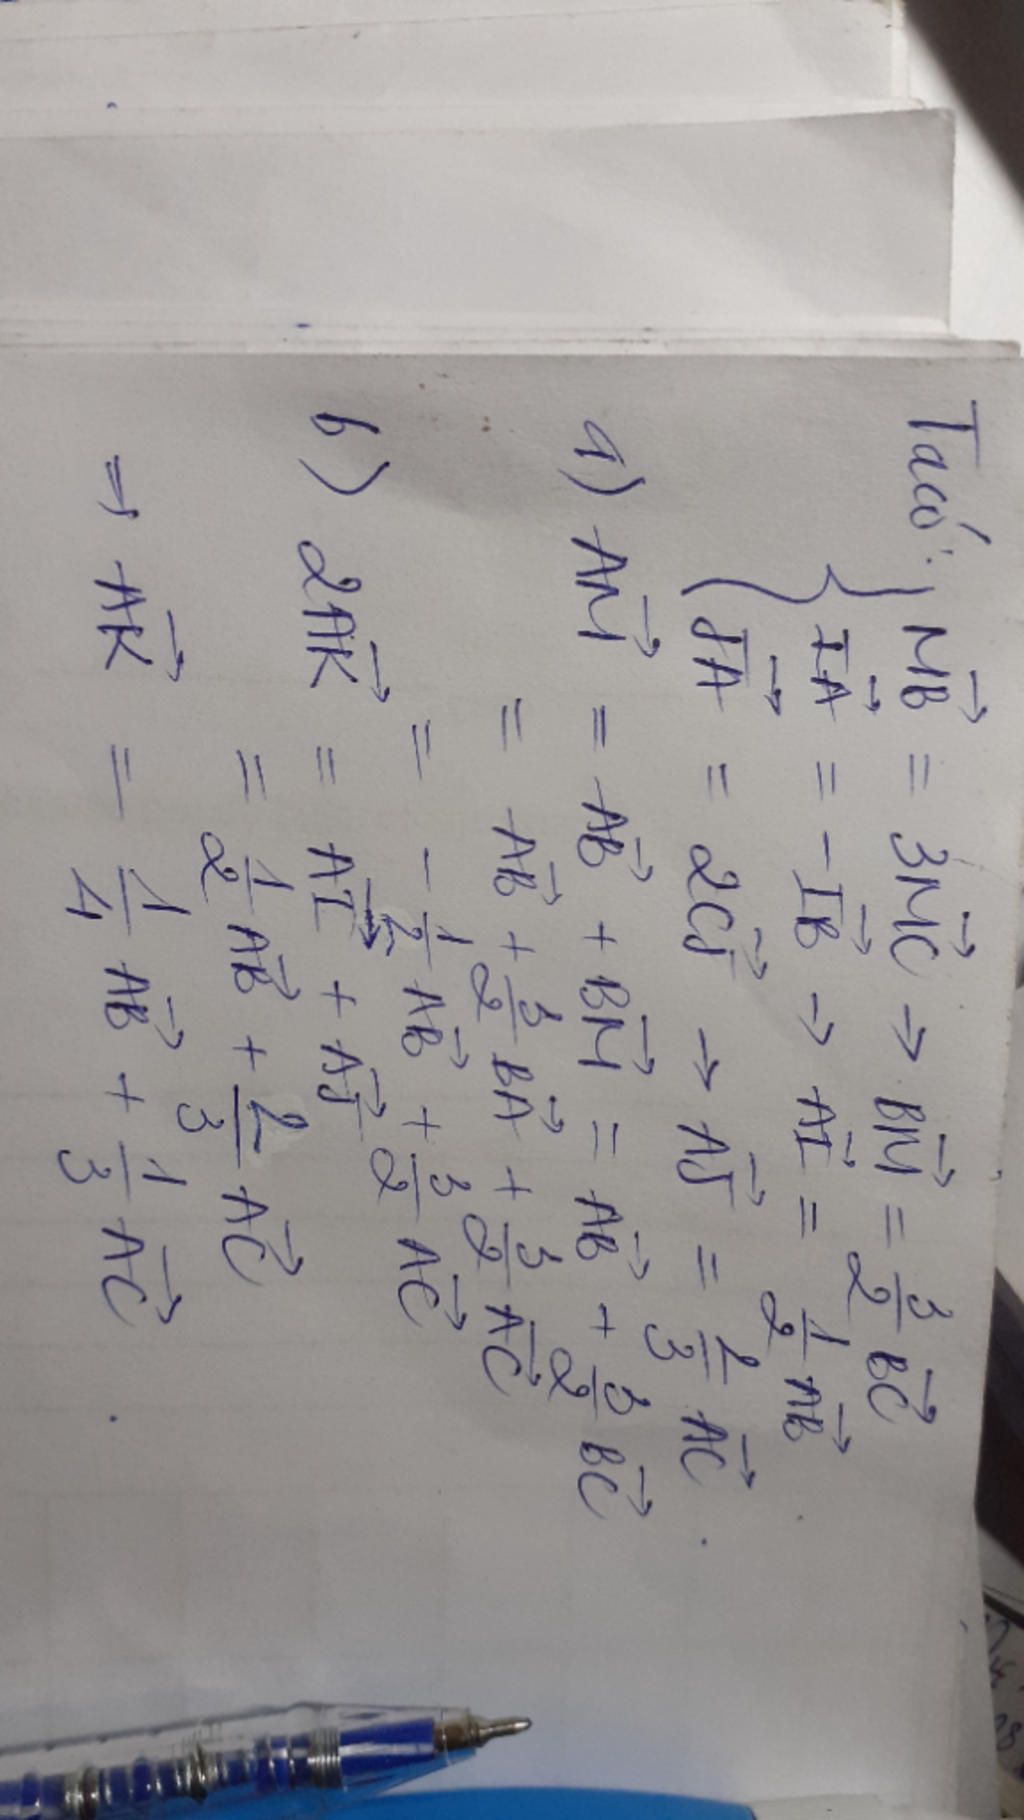 Ta có: { MB→ = 3MC→ → BM→ = 3/2 BC→
IA→ = -IB→ → AI→ = 1/2 AB→
JA→ = 2CJ→ → AJ→ = 2/3 AC→.
a) AM→ = AB→ + BM→ = AB→ + 3/2 BC→
= AB→ + 3/2 BA→ + 3/2 AC→
= - 1/2 AB→ + 3/2 AC→
b) 2AK→ = AI→ + AJ→
= 1/2 AB→ + 2/3 AC→
⇒ AK→ = 1/4 AB→ + 1/3 AC→.